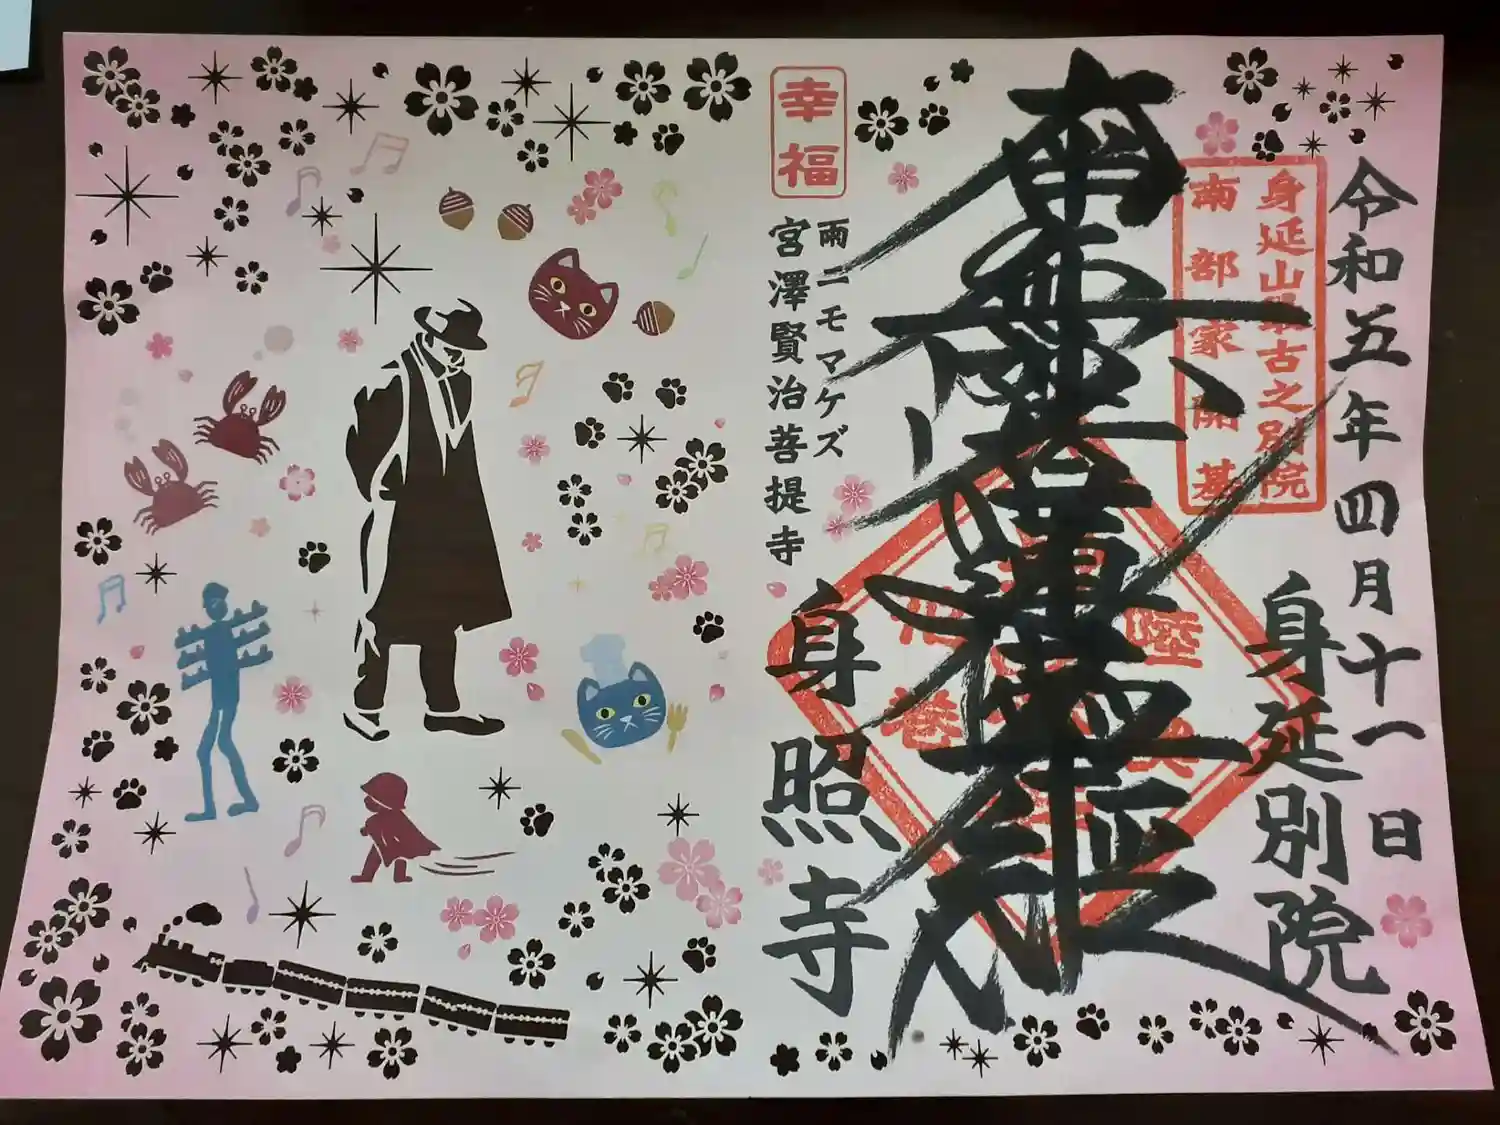 令和五年四月十一日
身延別院
身延山最古之別院
南部家開基
南無妙法蓮華經
陸奥
花巻
幸福
雨ニモマケズ
宮澤賢治菩提寺
身照寺